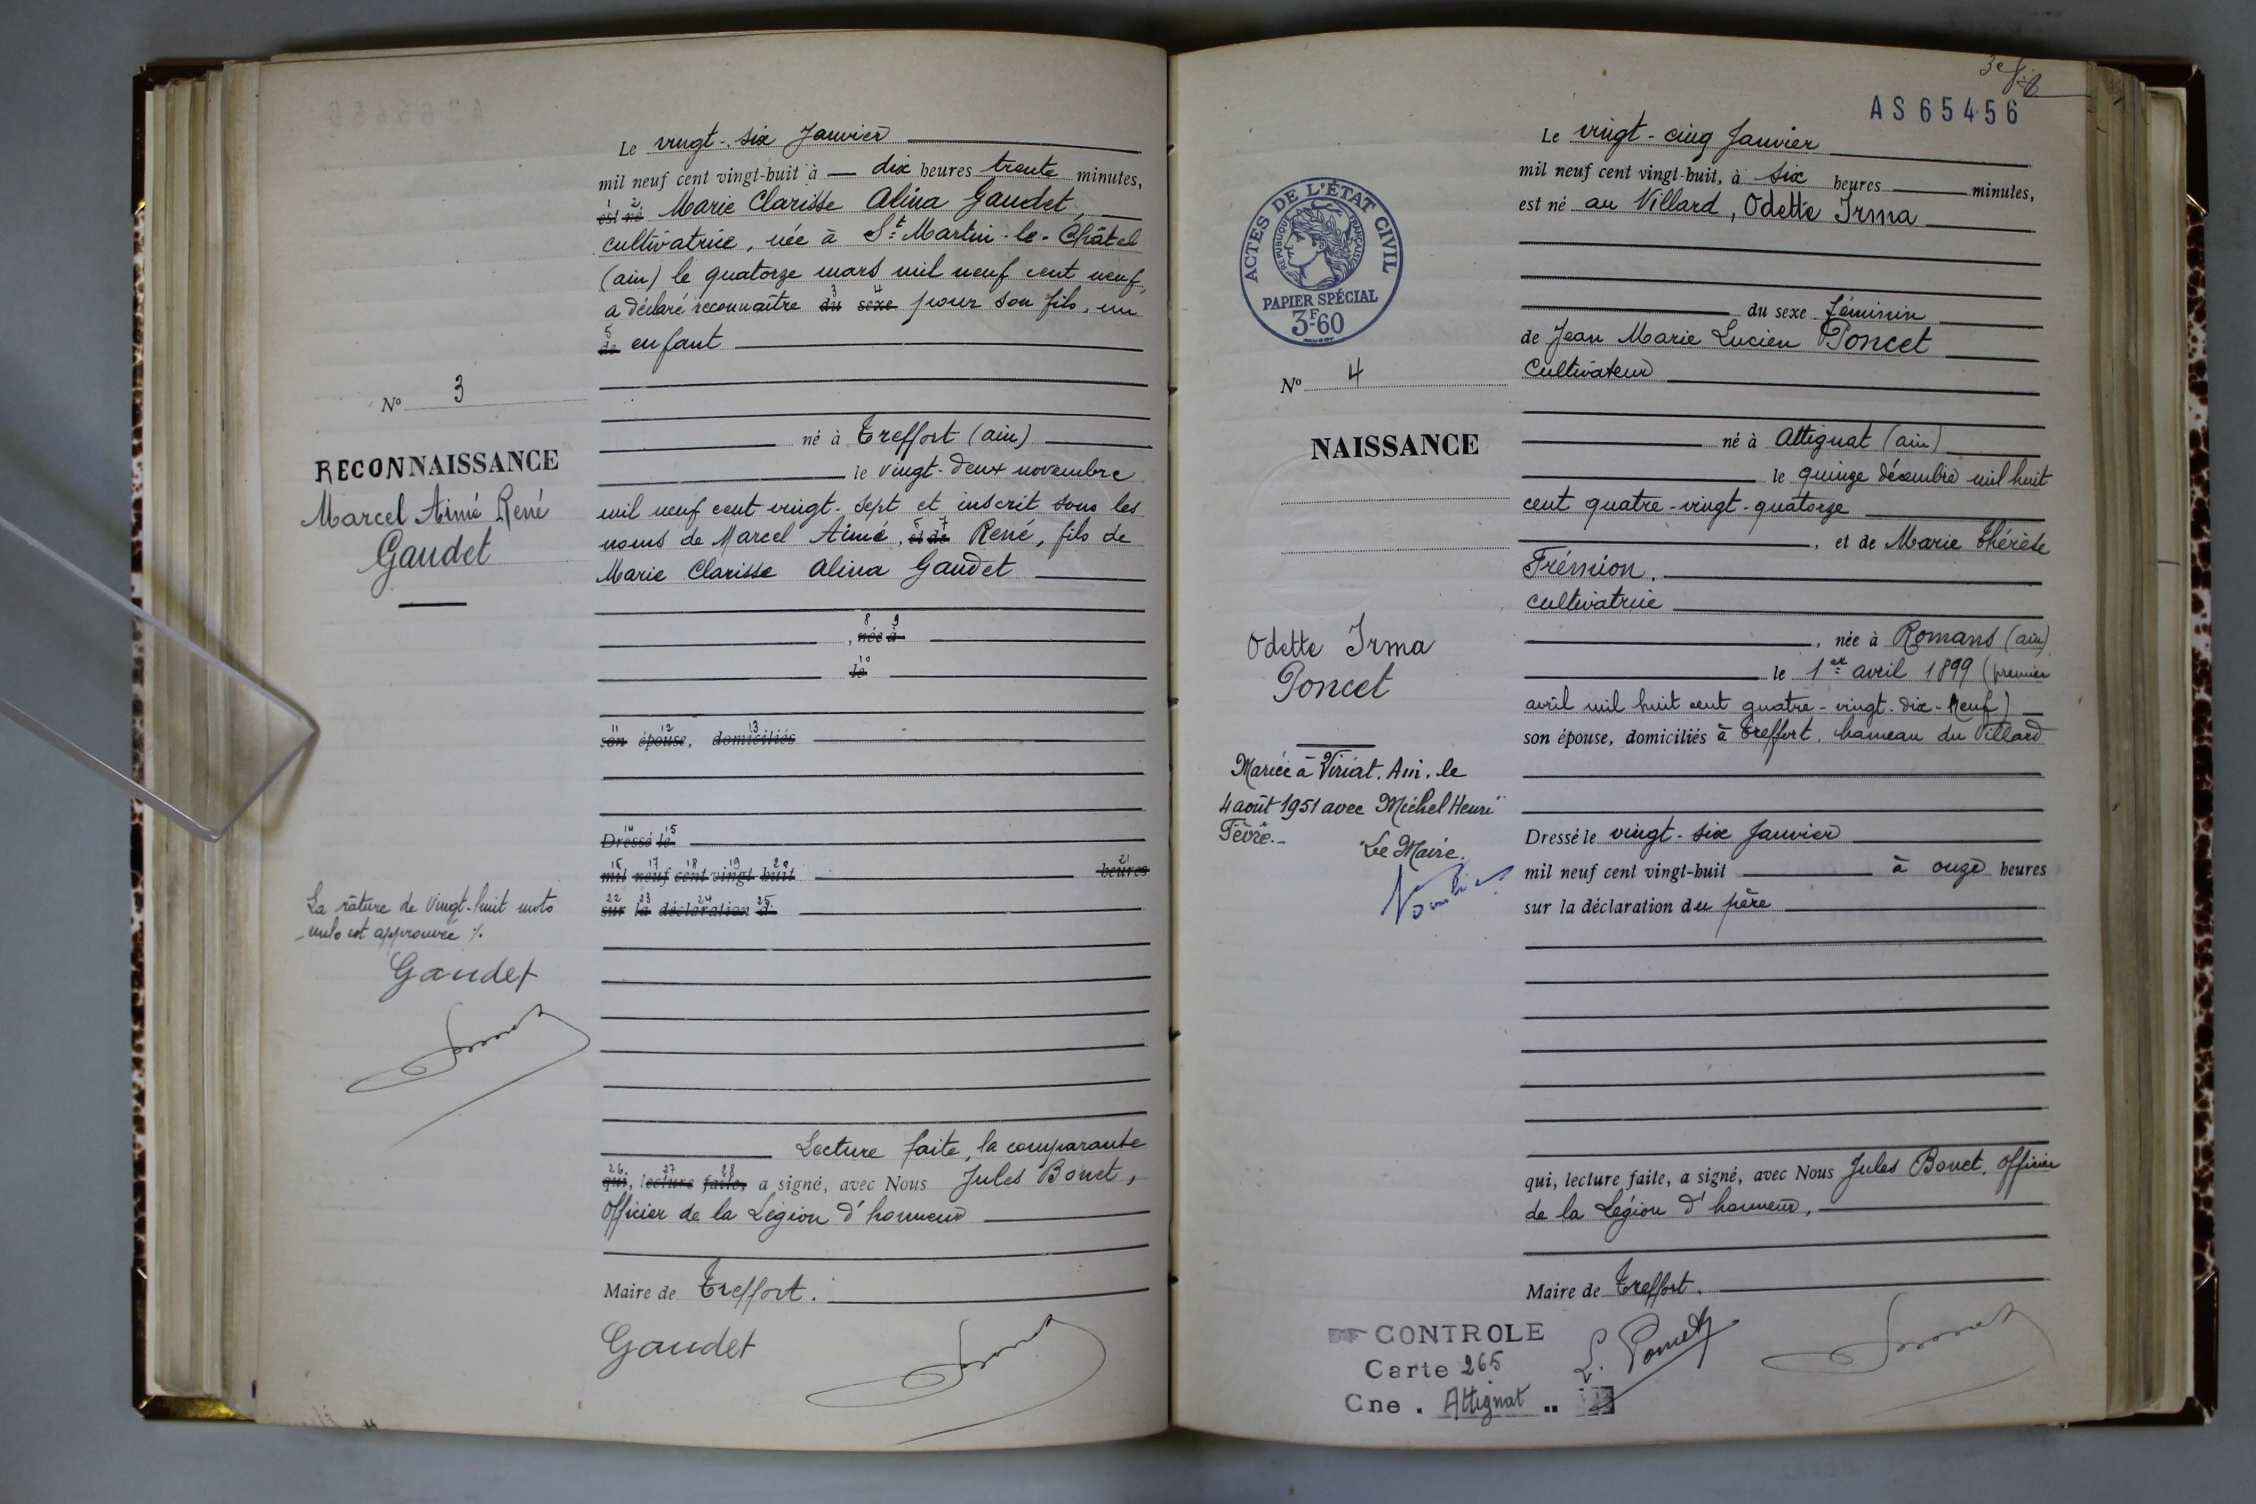 Le vingt-six Janvier
mil neuf cent vingt-huit à dix heures trente minutes,
1 2
est né Marie Clarisse Alina Gaudet,
cultivatrice, née à St Martin-le-Châtel
(ain) le quatorze mars mil neuf cent neuf,
3 4
a déclaré reconnaître du sexe pour son fils, un
5
de enfant
N° 3
né à Treffort (ain)
RECONNAISSANCE
le vingt-deux novembre
Marcel Aimé René
mil neuf cent vingt-sept et inscrit sous les
6 7
noms de Marcel Aimé, et de René, fils de
Gaudet
Marie Clarisse Alina Gaudet
8 9
, née à
10
le
11 12 13
son épouse, domiciliés
14 15
Dressé le
16 17 18 19 20 21
mil neuf cent vingt huit heures
22 23 24 25
sur la déclaration d
La râture de vingt-huit mots
nuls est approuvée ./.
Gaudet
Lecture faite, la comparante
26 27 28
qui, lecture faite, a signé, avec Nous Jules Bonet,
Officier de la Légion d'honneur
Maire de Treffort.
Gaudet
3e
AS65456
Le vingt-cinq Janvier
mil neuf cent vingt-huit, à six heures minutes,
est né au Villard, Odette Irma
ACTES DE L'ÉTAT CIVIL
REPUBLIQUE FRANÇAISE
PAPIER SPÉCIAL
3F-60
du sexe féminin
de Jean Marie Lucien Poncet
Cultivateur
N° 4
NAISSANCE
né à Attignat (ain)
le quinze décembre mil huit
cent quatre-vingt-quatorze
, et de Marie Thérèse
Frémion.
cultivatrice
Odette Irma
Poncet
, née à Romans (ain)
le 1er avril 1899 (premier
avril mil huit cent quatre-vingt-dix-neuf)
son épouse, domiciliés à Treffort, hameau du Villard
Mariée à Viriat. Ain. le
4 août 1951 avec Michel Henri
Fèvre.-
Le Maire.
Dressé le vingt-six Janvier
mil neuf cent vingt-huit à onze heures
sur la déclaration du père
qui, lecture faite, a signé, avec Nous Jules Bonet, Officier
de la Légion d'honneur,
Maire de Treffort.
CONTROLE
Carte 265
Cne. Attignat
L. Poncet